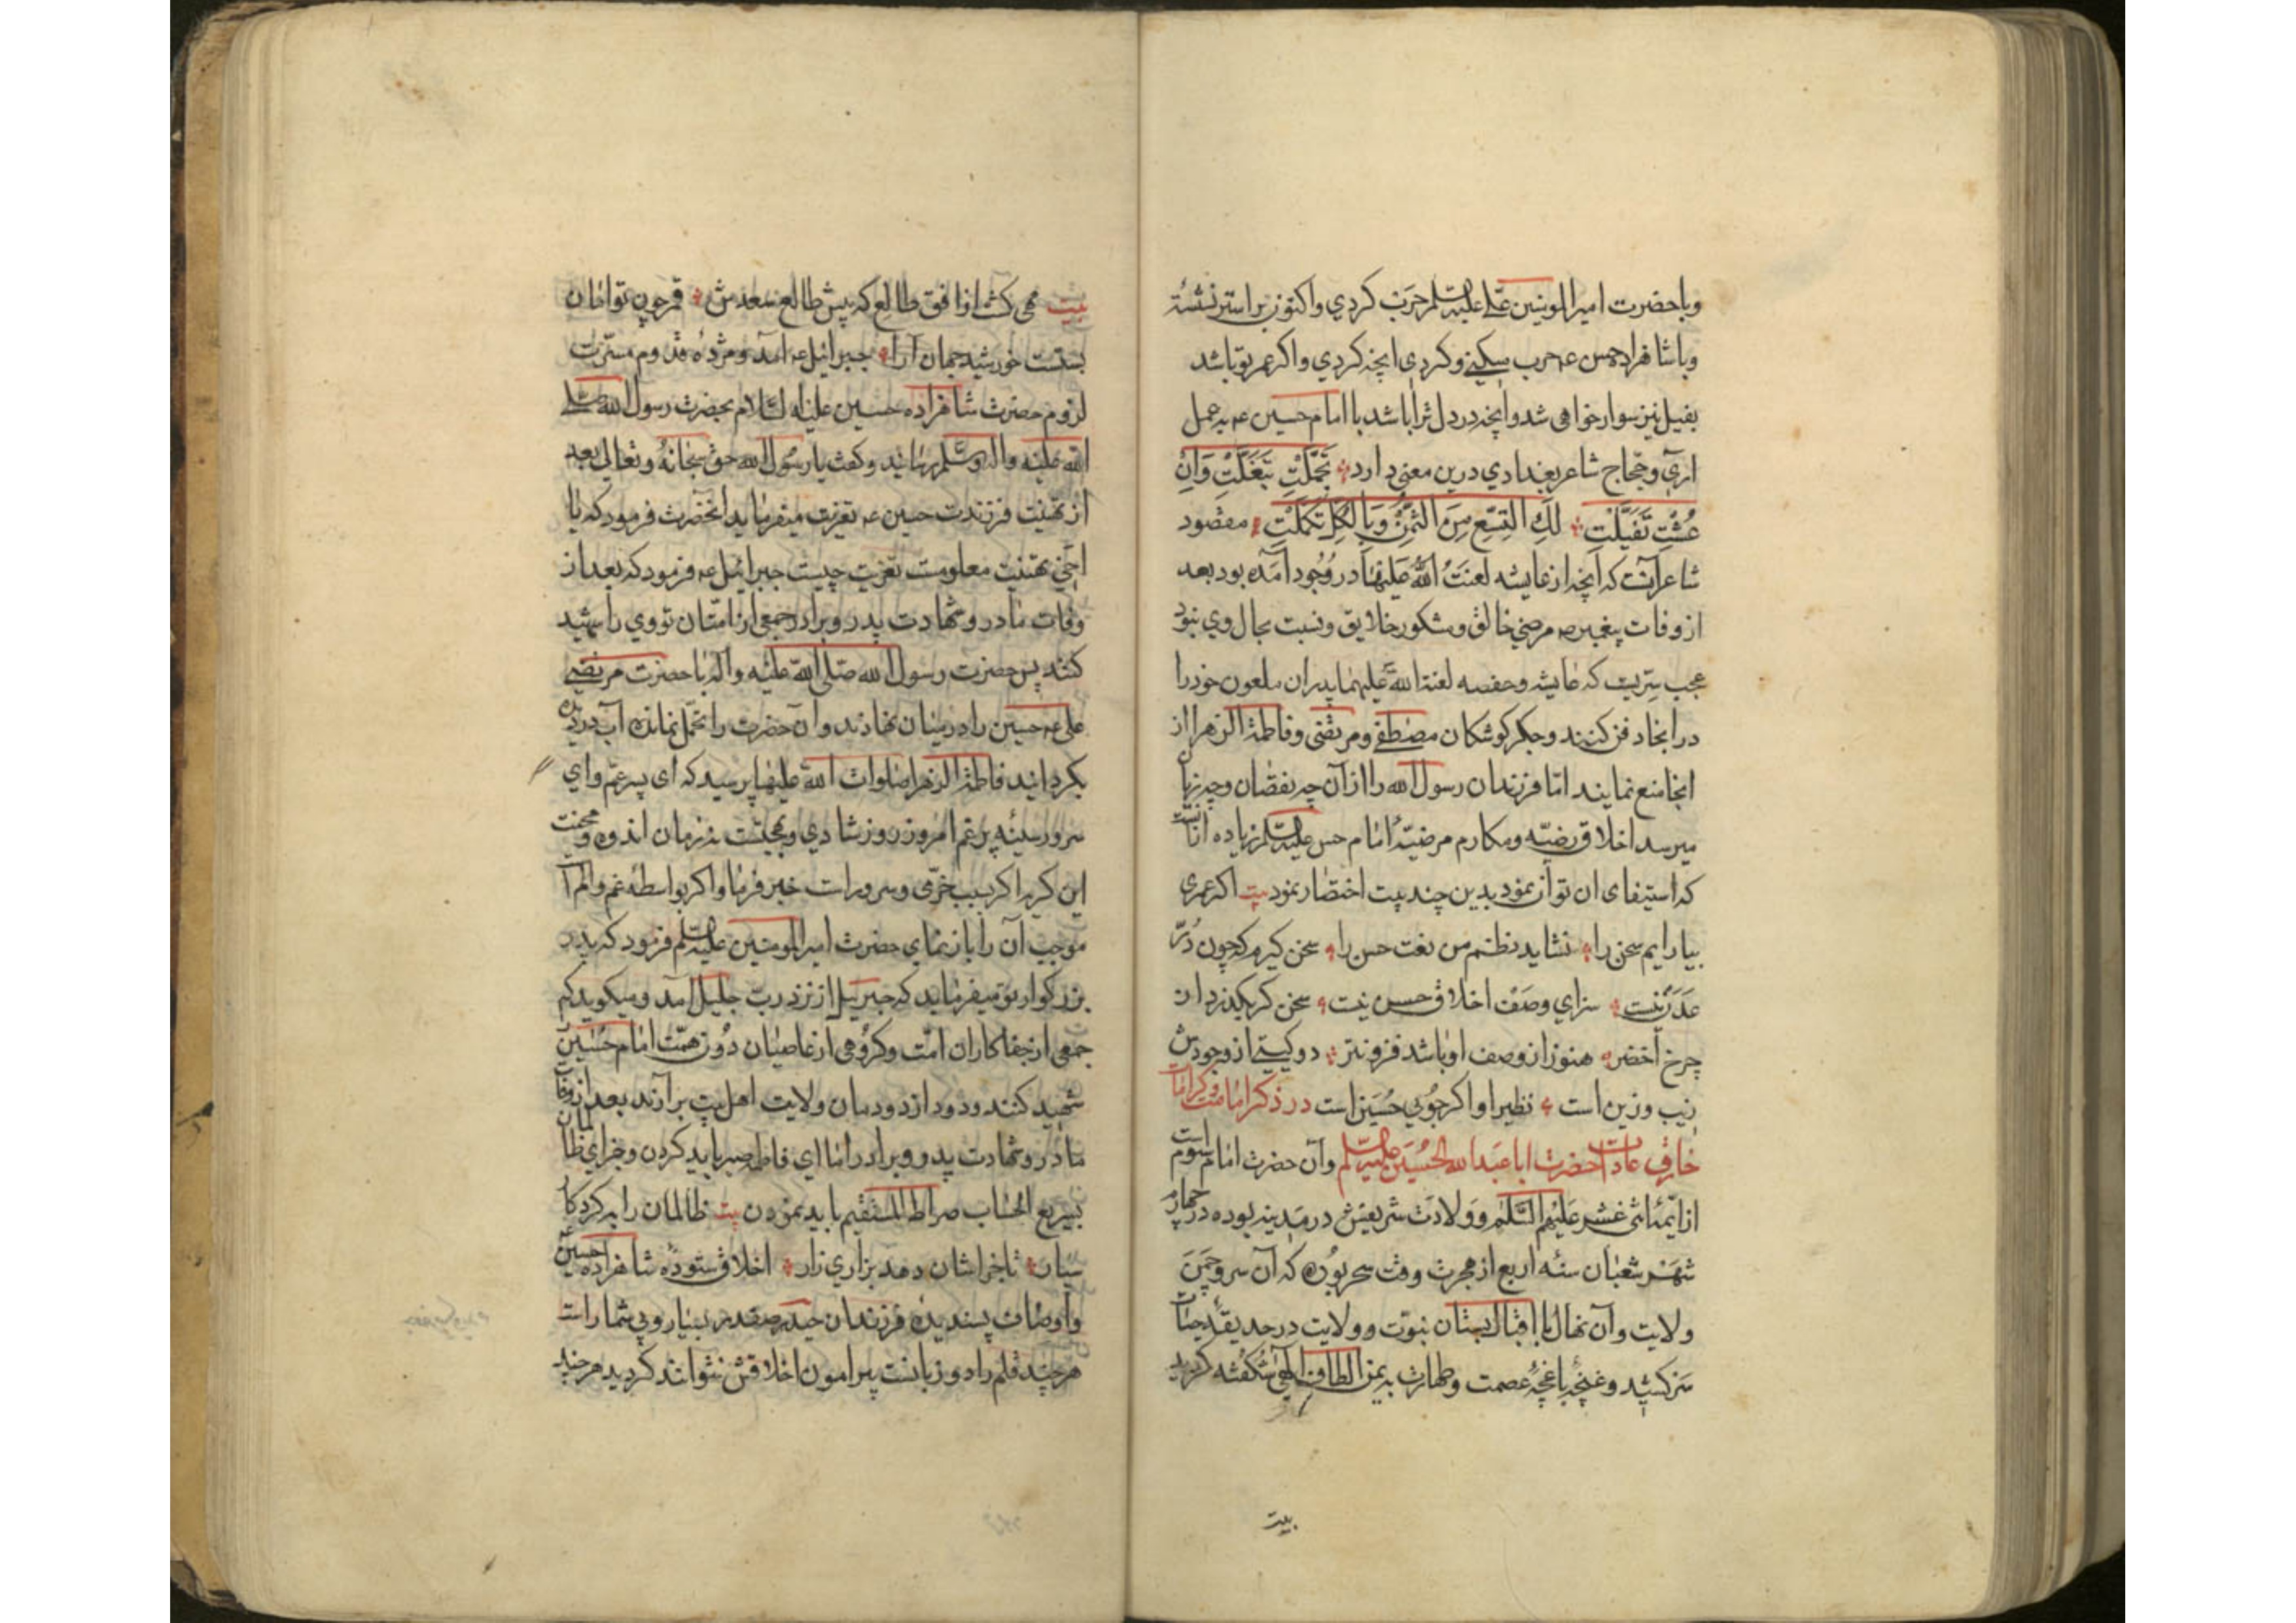 وباحضرت امیرالمومنین علی علیه السلم حرب کردی واکنون براستر نشستهٔ
وباشاهزاده حسن عه حرب میکنی وکردی انچه کردی واکر عمر توباشد
بفیل نیز سوار خواهی شد وانچه در دل تراباشد باامام حسین عه بعمل
اری وحجاج شاعر بغدادی درین معنی دارد تَجَمَّلْتِ تَبَغَّلْتِ وَاِنْ
عُشْتِ تَفَیَّلْتِ لَكِ التِسْع مِنَ الثُمْنِ وَبِالكُلِّ تَكَمَّلْتِ مقصود
شاعر آنست که انچه از عایشه لعنتُ اللّٰه علیها در وُجُود آمَده بود بعد
از وفات پیغمبر صه مرضیِ خالق ومشکور خلایق ونسبت بحال وی نبود
عجب سِرّیست که عایشه وحفصه لعنة اللّٰه علیهما پدران ملعون خود را
در انجا دفن کنند وجکر کوشکان مصطفی ومرتضی وفاطمة الزهرا از
انجا منع نمایند امّا فرزندان رسول اللّٰه را از آن چه نقصان وچه زیان
میرسد اخلاق رضیّه ومکارم مرضیّهٔ امام حسن علیه السلم زیاده ازانست
که استیفای ان توان نمود بدین چند بیت اختصار نمود بیت اکر عمری
بیارایم سخن را نشاید نظم من نعت حسن را سخن کیرم که چون دُرّ
عَدَن نیست سزای وصف اخلاق حسن نیست سخن کر بکذرد از
چرخ اَخضر هنوز از وصف او باشد فزونتر دو کیتی از وجودش
زیب وزین است نظیر او اکر جُویی حُسَین است در ذکر امامت وکرامات
خارق عادات حضرت اباعَبدالله الحُسَین علیه السلم وآن حضرت امام سوم است
از ایّمهٔ اثنی عَشر عَلَیهم السَّلَم وولادت شریفش در مَدینه بوده در چهارم
شهر شعبان سنه اربع از هجرت ووقت سحر بُوده که آن سرو چمن
ولایت وآن نهال بااقبال بستان نبوّت وولایت در حدیقهٔ حیات
سَر کشید وغنچهٔ باغچهٔ عصمت وطهارت به یمن الطاف الهی شکُفته کردید
بیت
بیت مهی کشت از افق طالع که پیش طالع سعدش قمر چون توامان
بستست خورشید جهان آرا جبرائیل عه آمد ومژدهٔ قدوم مسرّت
لزوم حضرت شاهزاده حسین علیه السّلام بحضرت رسول اللّٰه صلی
اللّٰه علیه واله وسلم رسانید وکفت یا رسُول اللّٰه حق سبحانهُ وتعالی بعد
از تهنیت فرزندت حسین عه تعزیت میفرماید انحضرت فرمود که یا
اخی تهنیت معلومست تعزیت چیست جبرائیل عه فرمود که بعد از
وفات مادر وشهادت پدر وبرادر جمعی از امّتان تو وی را شهید
کنند پس حضرت رسول اللّٰه صلّی اللّٰه علیه واله با حضرت مرتضی
علی عه حسین را درمیان نهادند وآن حضرت را تحمّل نمانده آب در دیده
بکردانید فاطمة الزهرا صلوات اللّٰه علیها پرسید که ای پسر عمّ وای
سرور سینهٔ پر غم امروز روز شادی وبهجتست نه زمان اندوه ومحنت
این کریه اکر بسبب خرّمی وسرور است خبر فرما واکر بواسطهٔ غم والم آ
موجب آن را باز نمای حضرت امیرالمومنین علیه السلم فرمود که پدر
بزرکوار تو میفرماید که جبرئیل از نزد ربّ جلیل آمد ومیکوید که
جمعی از جفاکاران امّت وکروُهی از عاصیان دُون همّت امام حُسَین
شهید کنند ودود از دودمان ولایت اهل بیت برآرند بعد از وفات
مادر وشهادت پدر وبرادر اما ای فاطمه صبر باید کردن وجزای ظالمان
بسَریع الحساب صراط المستقیم باید نمودن بیت ظالمان را به کردکار
سپار تاجزاشان دهد بزاری زار اخلاق ستودهٔ شاهزاده حسین
واَوصاف پسندیدهٔ فرزندان حیدر صفدر بسیار وبی شمار است
هر چند قلم راه دو زبانست پیرامون اخلاقش نتواند کردید هرچند